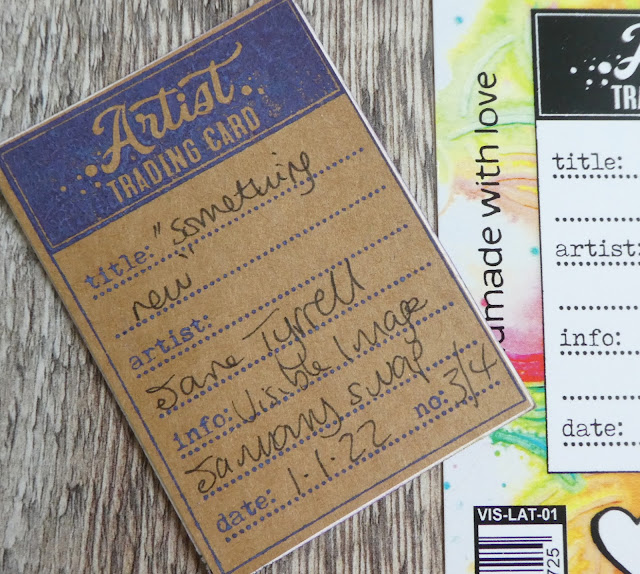 Artist
TRADING CARD
title: "something
new"
artist:
Jane Tyrrell
info: Visible Image
January swap
no: 3/4
date: 1.1.22
made with love
title:
artist:
info:
date:
VIS-LAT-01
725